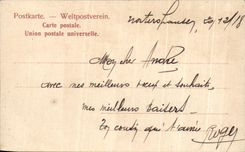 Postkarte. — Weltpostverein.
Carte postale.
Union postale universelle.
Mon cher André
avec mes meilleurs vœux et souhaits,
mes meilleurs baisers
Ton cousin qui t'aime
Roger